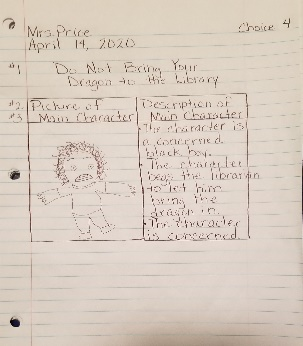 Choice 4
Mrs. Price
April 14, 2020
#1 Do Not Bring Your
Dragon to the Library
#2 Picture of
#3 Main Character
Description of
Main Character
• The character is
a concerned
black boy.
• The character
begs the librarian
to let him
bring the
dragon in.
• The character
is concerned.